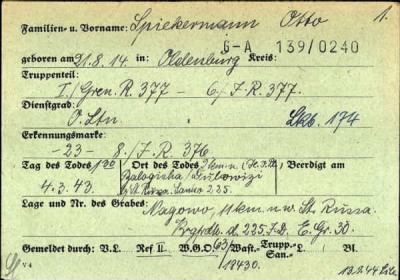 1.
Familien- u. Vorname: Spiekermann Otto
G-A 139/0240
geboren am 21.8.14 in: Oldenburg Kreis:
Truppenteil
I./Gren.R. 377 - 6/J.R. 377.
Dienstgrad:
O.Ltn. Lkb. 174
Erkennungsmarke:
-23- 8./J.R. 376
Tag des Todes Ort des Todes Beerdigt am
4.3.43.
225.
Lage und Nr. des Grabes:
Nagowo, 11 km n.w. St. Russa.
d. 225 J.D. E.Gr. 30.
Gemeldet durch: V.L. Ref II W.G.O. Wast.- Trupp.- San.- L. Bl.
18430. 13.9.44
V 4